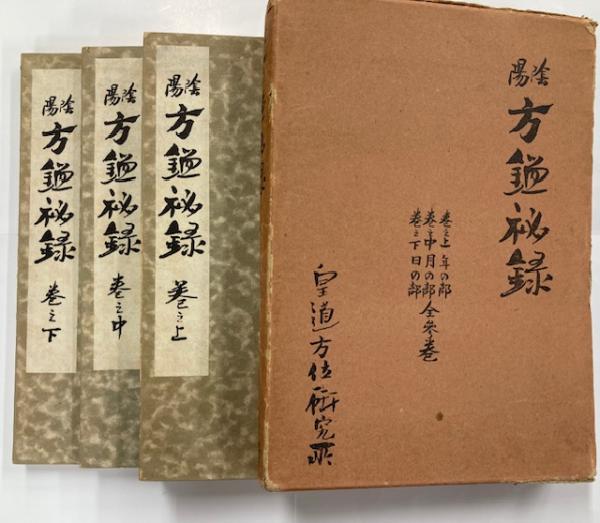 陰陽
方鑑祕録
巻之上 年の部
巻之中 月の部 全参巻
巻之下 日の部
皇道方位研究所
陰陽
方鑑祕録 巻之上
陰陽
方鑑祕録 巻之中
陰陽
方鑑祕録 巻之下